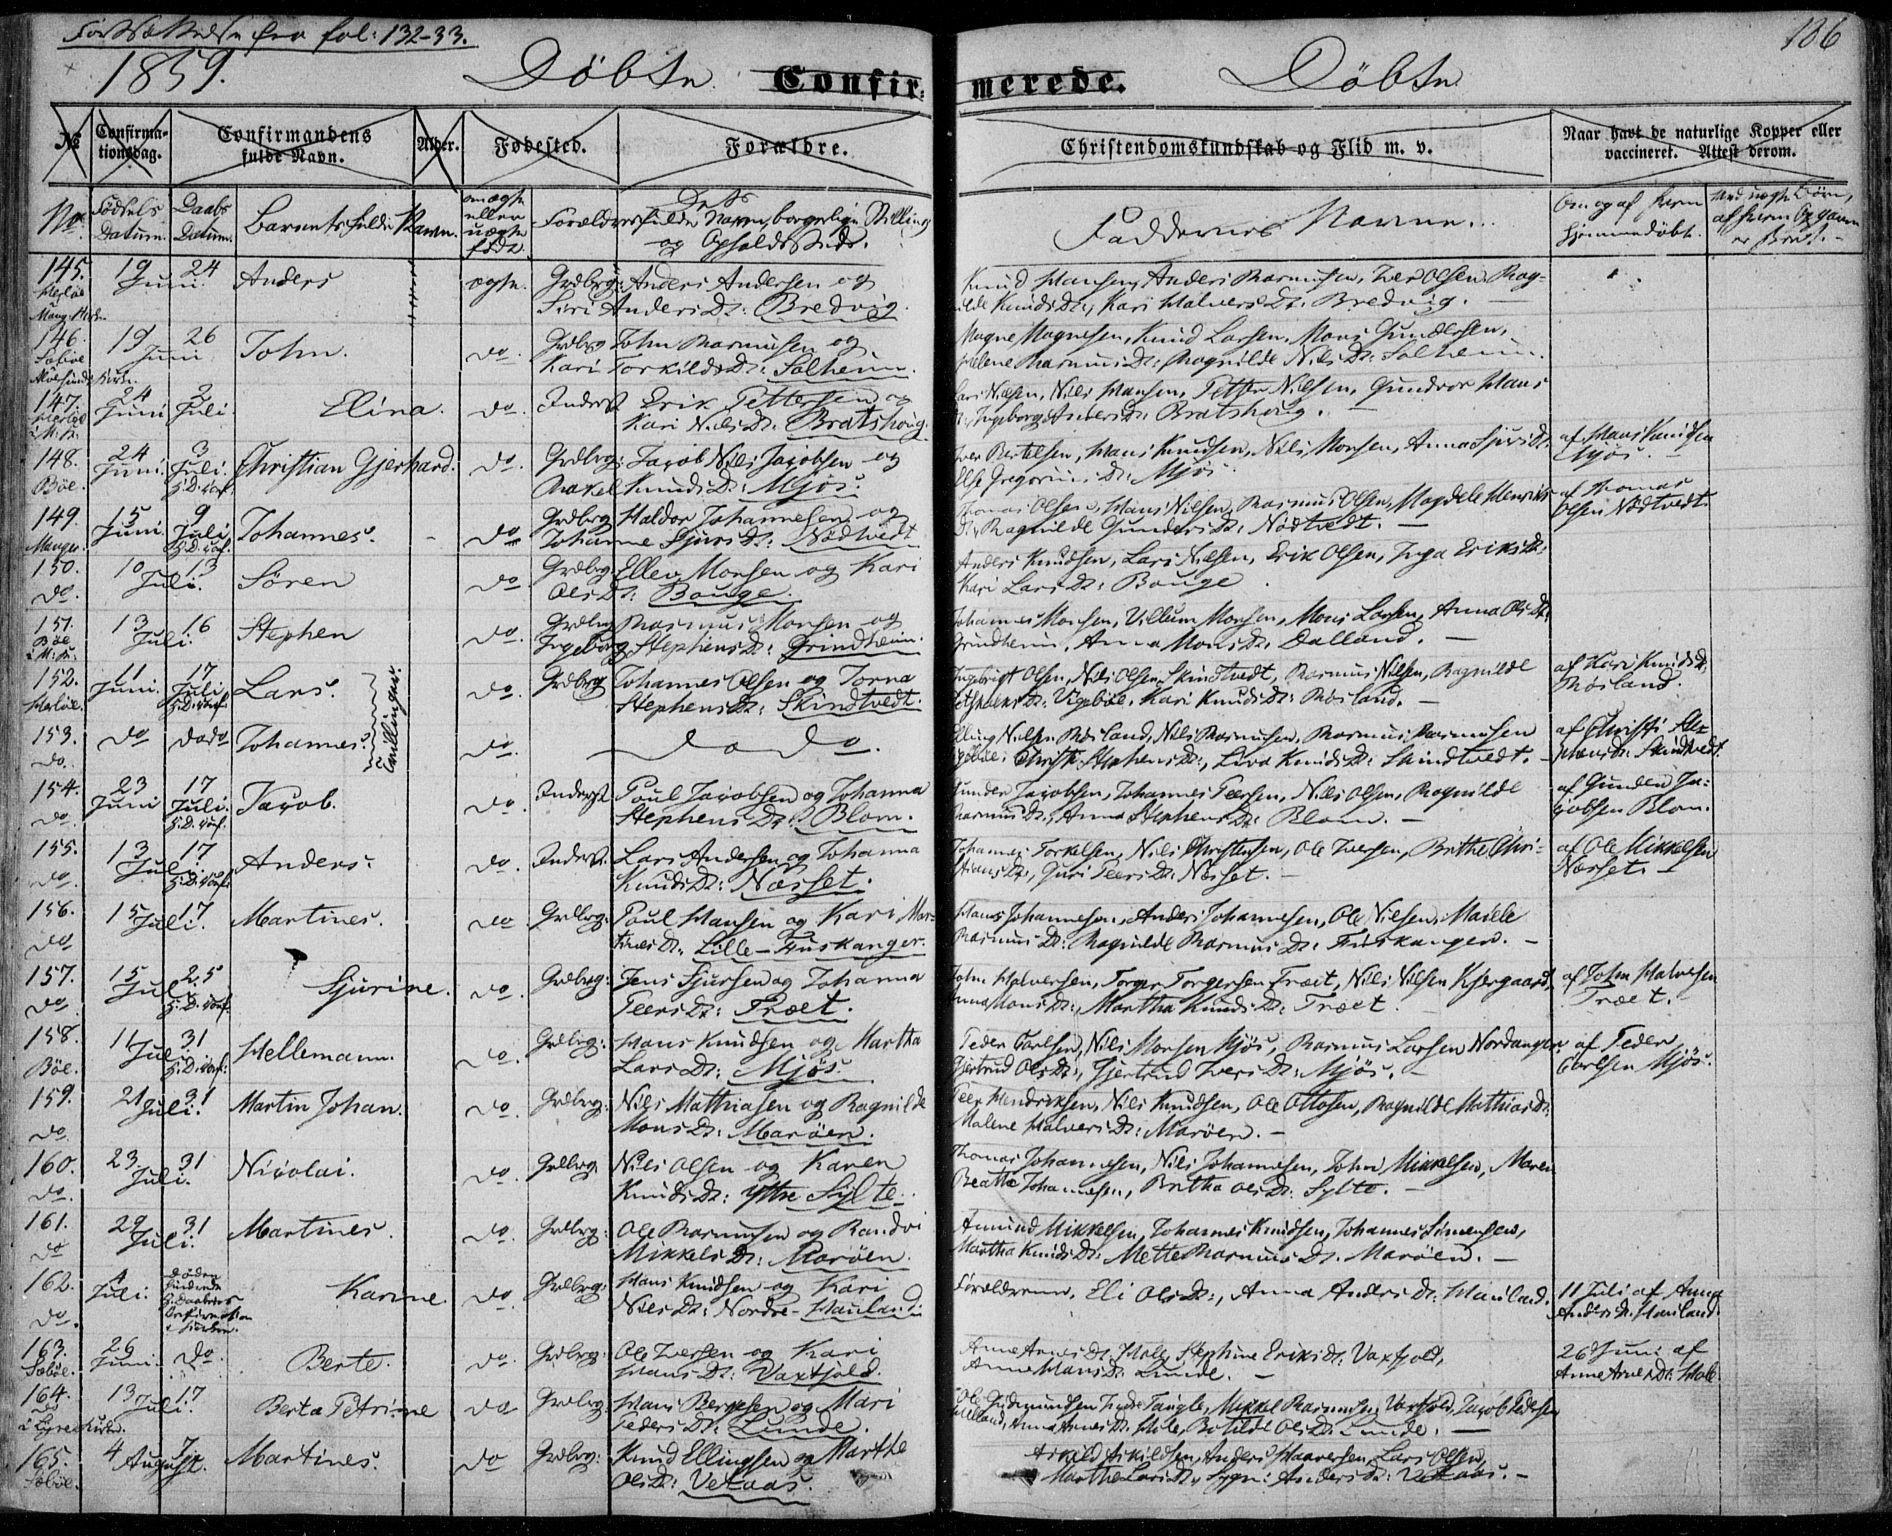 fol: 132-33.
106
1859. Døbte Confirmerede. Døbte
№ Confirmationsdag. Confirmandens fulde Navn. Alder. Fødested. Forældre. Christendomskundskab og Flid m. v. Naar havt de naturlige Kopper eller vaccineret. Attest derom.
No. Fødsels Datum. Daabs Datum. Barnets fulde Navn. Forældres fulde Navn, borgerlige Stilling og Opholdssted. Faddernes Navne. Om og af hvem hjemmedøbt.
145. 19 24 Juni Anders ægte. Grdbrg: Anders Andersen og
Siri Anders Dt: Bredvig. Knud Hansen, Anders Rasmusen, Iver Olsen, Rag-
nilde Knuds Dt:, Kari Halvers Dt: Bredvig. —
146. 19 26 Juni John. do. Grdbrg John Rasmusen og
Kari Torkilds Dt: Solheim. Magne Magnesen, Knud Larsen, Mons Gundersen,
Helene Rasmus Dt: Ragnilde Nils Dt: Solheim.
147. 24 Juni 2 Juli Elina. do. Inderst Erik Pettersen og
Kari Niels Dt: Bratshoug. Lars Nielsen, Niels Hansen, Petter Nielsen, Gundvor Hans
Ingeborg Anders Dt: Bratshoug. —
148. Böe. 24 Juni 3 Juli. Christian Gjerhard. do. Grdbrg: Jacob Nils Jacobsen og
Rakel Knuds Dt: Mjös. Iver Bertelsen, Hans Knudsen, Nils Monsen, Anna Sjurs Dt: af Hans Knudsen
Else Gregorius Dt: Mjös Mjös.
149. Manger. 15 Juni 9 Juli Johannes. do Grdbrg Haldor Johannesen og
Johanne Sjurs Dt: Nödtvedt Thomas Olsen, Hans Nilsen, Rasmus Olsen, Magdele Henriks af Thomas
Dt:, Ragnilde Gunders Dt: Nödtvedt. — Olsen Nödtvedt.
150. do. 10 13 Juli. Sören do Grdbrg Ellev Monsen og Kari
Ols Dt: Bouge. Anders Knudsen, Lars Nilsen, Erik Olsen, Inga Eriks Dt:
Kari Lars Dt: Bouge.
151. Böe 13 16 Juli. Stephen do. Grdbrg Rasmus Monsen og
Ingeborg Stephens Dt: Grindheim. Johannes Monsen, Villum Monsen, Mons Larsen, Anna Ols Dt:
Grindheim, Anna Mons Dt: Dalland. —
152. Herlöe. 11 Juni. 17 Juli Lars. Tvillinger. do. Grdbrg Johannes Olsen og Torna
Stephens Dt: Skindtvedt. Ingebrigt Olsen, Nils Olsen Skindtvedt, Rasmus Nilsen, Ragnilde af Kari Knuds Dt:
Vigebøe, Kari Knuds Dt: Røsland. — Røsland.
153. do. do do do Johannes. do. do do. Elling Nilsen Røsland, Nils Rasmusen, Rasmus Rasmusen af Christi Ste-
Christi Stephens Dt:, Liva Knuds Dt: Skindtvedt. — phens Dt: Skindtvedt.
154. do. 23 Juni 17 Juli. Jacob. do. Inderst Poul Jacobsen og Johanna
Stephens Dt: Blom. Gunder Jacobsen, Johannes Peersen, Nils Olsen, Ragnilde af Gunder Ja-
Rasmus Dt:, Anna Stephens Dt: Blom. — cobsen Blom.
155. do. 13 17 Juli Anders. do. Inderst. Lars Andersen og Johanna
Knuds Dt: Næsset. Johannes Torkelsen, Nils Christensen, Ole Iversen, Brithe Chri- af Ole Mikkelsen
stians Dt:, Guri Peers Dt: Næsset. — Næsset. —
156. do 15 17 Juli. Martines. do Grdbrg: Poul Hansen og Kari Mar-
tines Dt: Lille-Fuskanger. Hans Johannesen, Anders Johannesen, Ole Nilsen, Marele
Rasmus Dt: Ragnilde Rasmus Dt: Fuskanger. —
157. do 15 25 Juli Sjurine. do. Grdbrg: Jens Sjursen og Johanna
Peers Dt: Træet. John Halversen, Torger Torgersen Træet, Nils Nilsen Kjergaard, af John Halvesen
Anna Mons Dt:, Martha Knuds Dt: Træet. Træet.
158. Böe. 11 31 Juli Hellemann. do. Grdbrg: Hans Knudsen og Martha
Lars Dt: Mjös Peder Carlsen, Nils Monsen Mjös, Rasmus Larsen Nordanger af Peder
Gjertrud Ols Dt:, Gjertrud Ivers Dt: Mjös. — Carlsen Mjös.
159. do. 21 31 Juli. Martin Johan. do. Grdbrg: Nils Mathiasen og Ragnilde
Mons Dt: Maröen. Peer Hendriksen, Nils Knudsen, Ole Ottosen, Ragnilde Mathias Dt:
Malene Halvers Dt: Maröen. —
160. do. 23 31 Juli. Nicolai. do. Grdbrg: Nils Olsen og Karen
Knuds Dt: Ytre Sylte. Thomas Johannesen, Nils Johannesen, John Mikkelsen, Maren
Beatte Johannesen, Brithe Ols Dt: Sylte. —
161. do 29 31 Juli. Martines. do. Grdbrg: Ole Rasmusen og Randvi
Mikkels Dt: Maröen. Amund Mikkelsen, Johannes Knudsen, Johannes Simensen,
Martha Knuds Dt: Mette Rasmus Dt: Maröen. —
162. do. Juli. Karine do Grdbrg: Hans Knudsen og Kari
Niels Dt: Nordre-Hauland. Forældrerne, Eli Ols Dt:, Anna Anders Dt: Hauland. 11 Juli af Anna
Anders Dt: Hauland
163. Sæböe. 26 Juni. do. Berte. do Grdbrg: Ole Iversen og Kari
Hans Dt: Vaxtfold. Anne Arnes Dt: Hole, Stephine Eriks Dt: Vaxtfold, 26 Juni af
Anne Hans Dt: Lunde. — Anne Arnes Dt: Hole
164. do 13 17 Juli. Berta Petrine do Grdbrg: Hans Bergesen og Mari
Peders Dt: Lunde. Ole Gudmundsen Indre Tangle, Mikkel Rasmusen Vaxtfold, Jacob Pedersen
Anna Arnes Dt: Hole, Botilde Ols Dt: Lunde. —
165. Sæböe. 4 7 August. Martines. do Grdbrg: Knud Ellingsen og Marthe
Ols Dt: Vetaas. Askild Askildsen, Anders Haaversen, Lars Olsen,
Marthe Lars Dt:, Sygni Anders Dt: Vetaas. —